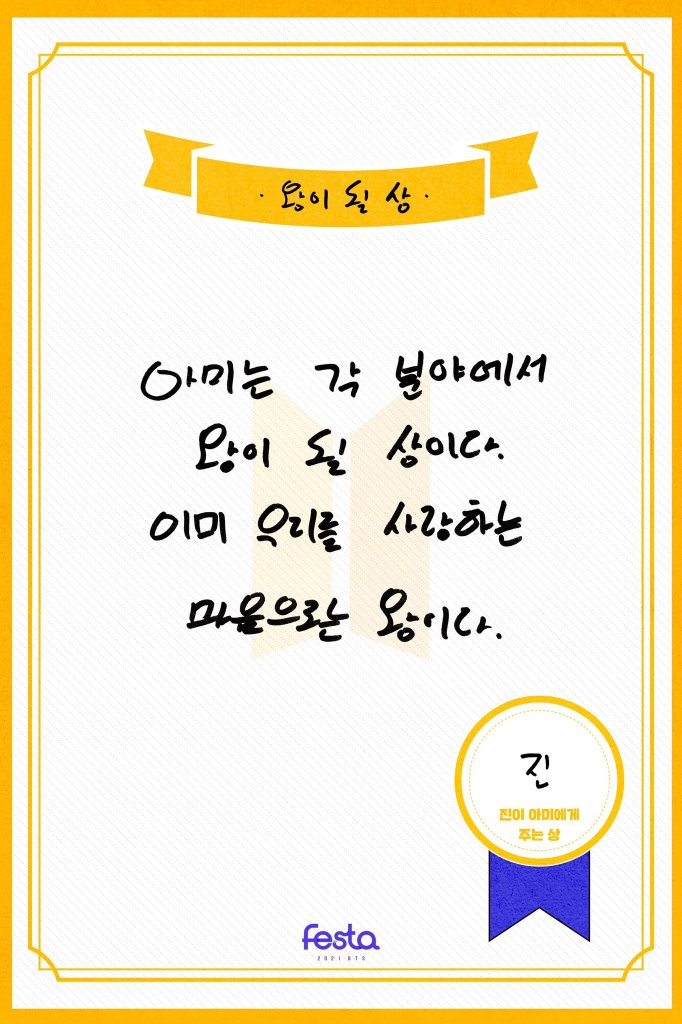 · 왕이 될 상 ·
아미는 각 분야에서
왕이 될 상이다.
이미 우리를 사랑하는
마음으로는 왕이다.
진
진이 아미에게
주는 상
festa
2021 BTS